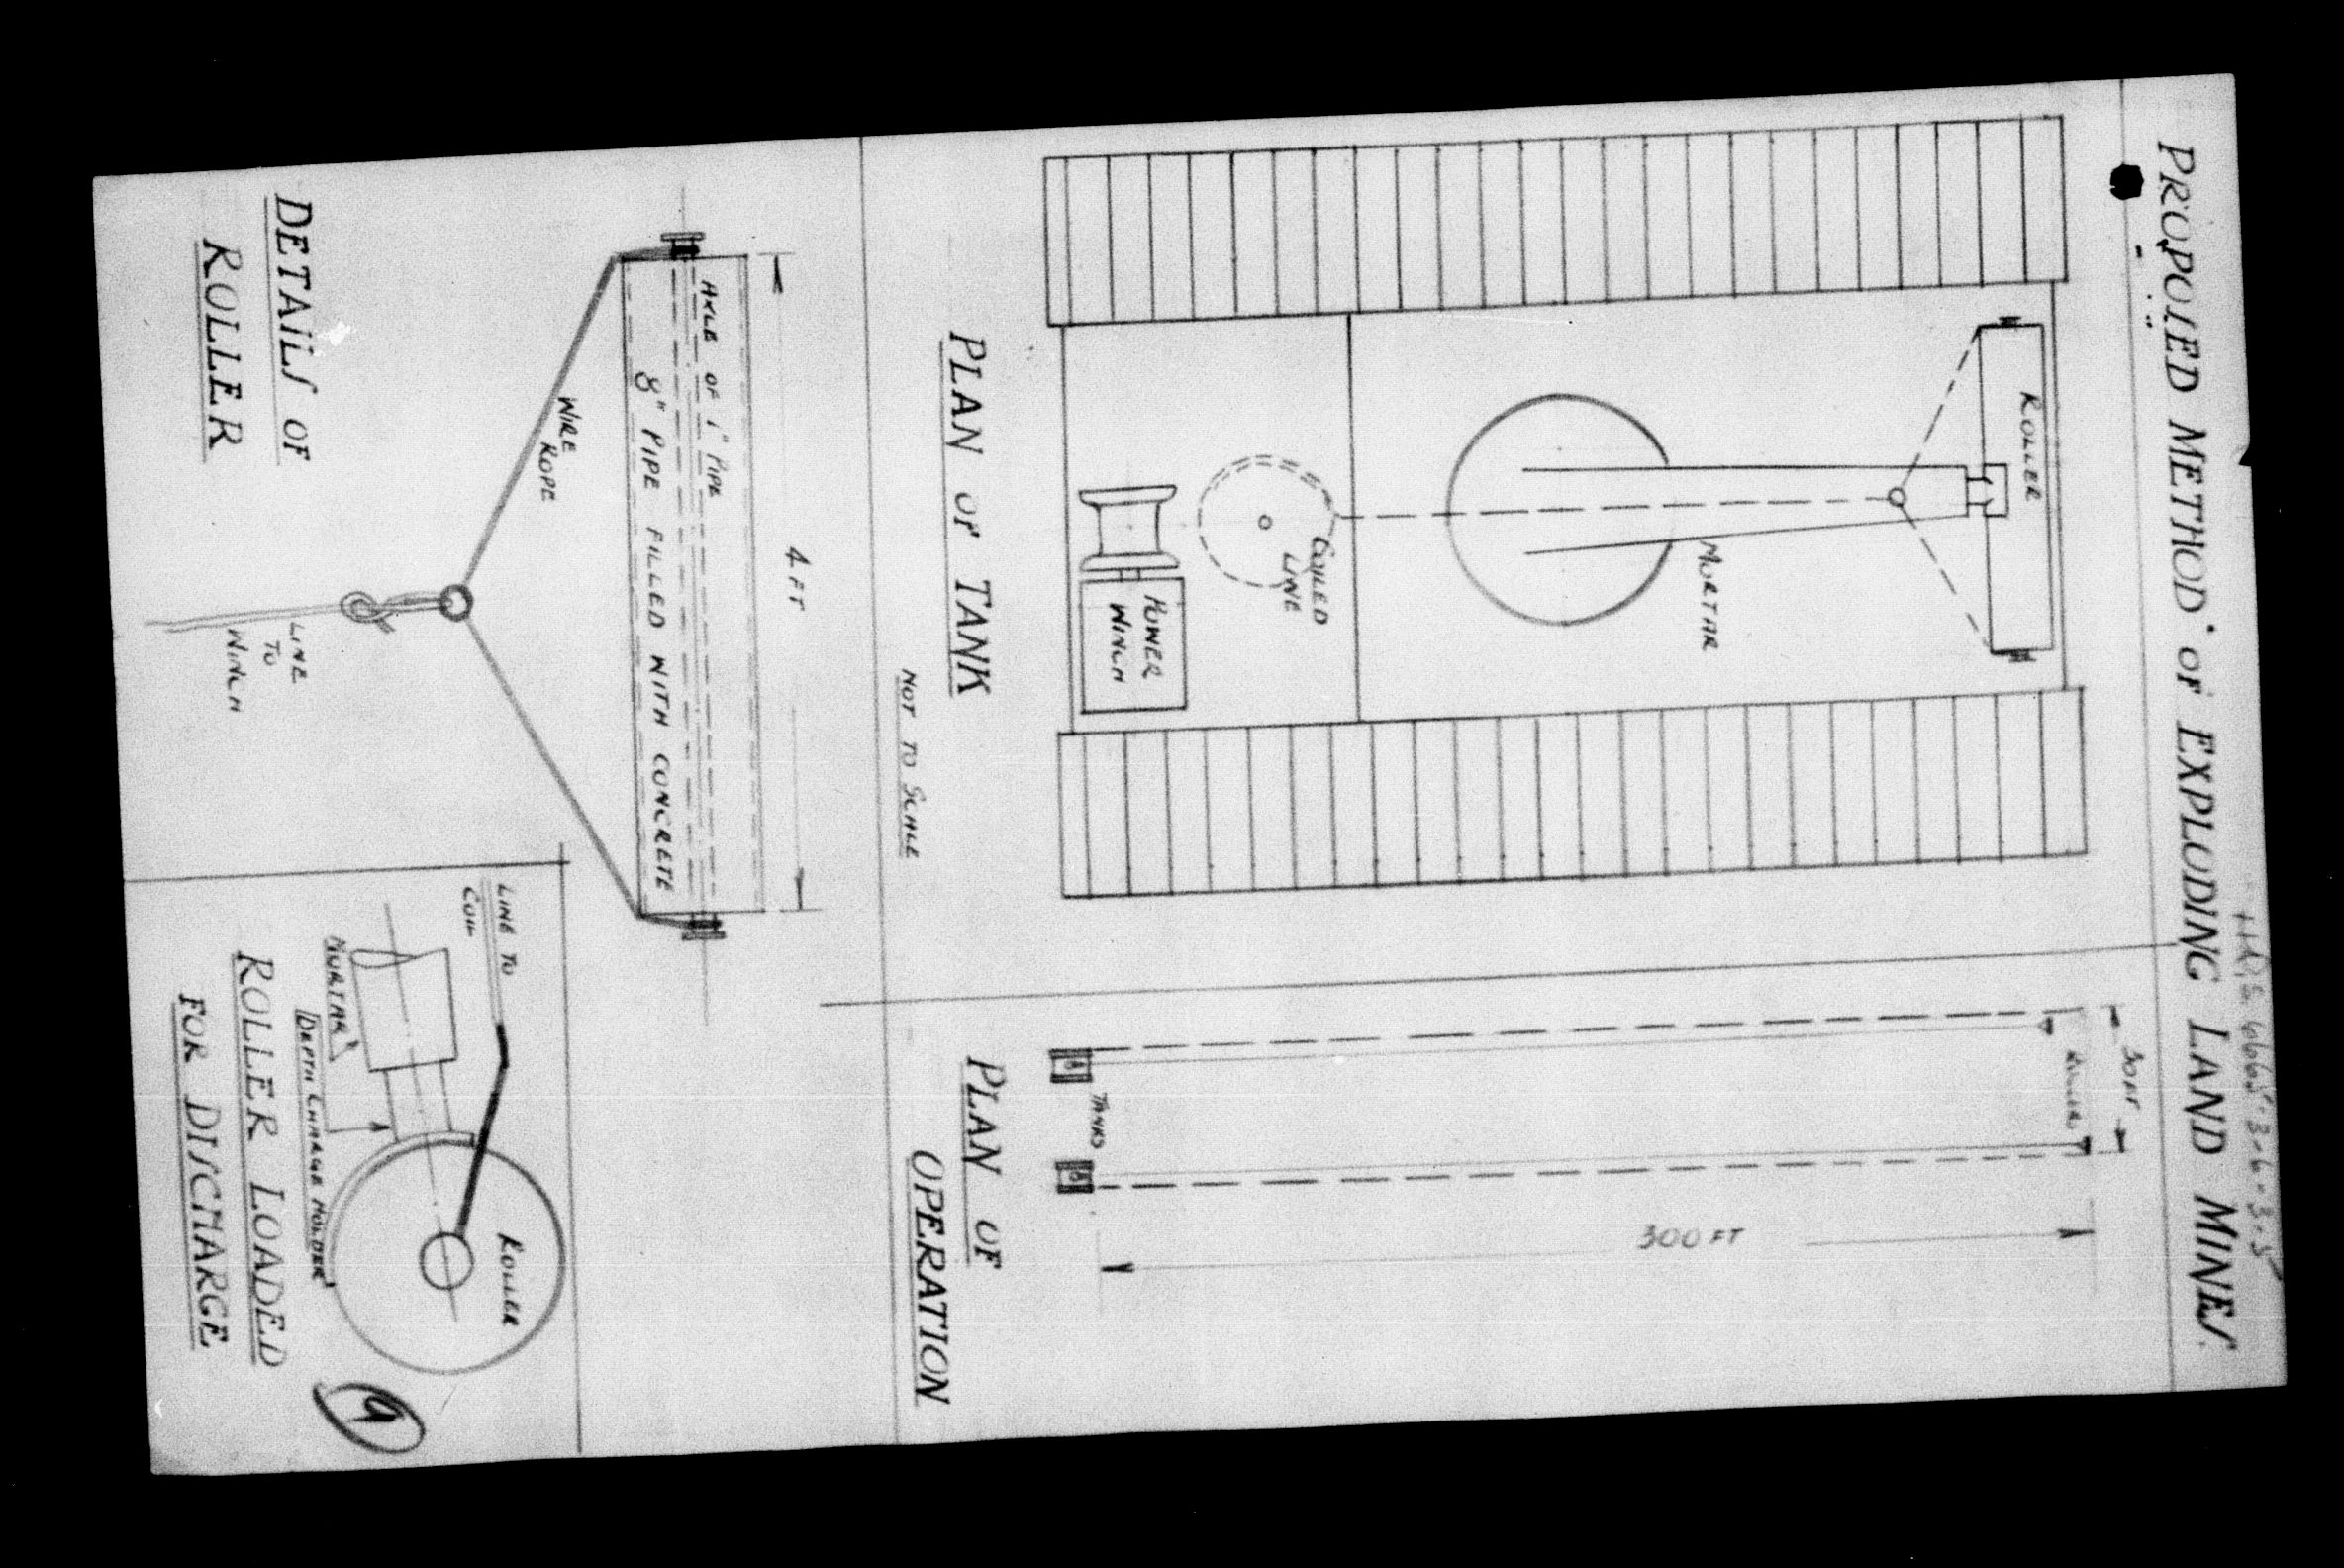 PROPOSED METHOD OF EXPLODING LAND MINES.
ROLLER
MORTAR
COILED
LINE
POWER
WINCH
PLAN OF TANK
NOT TO SCALE
30 FT
ROLLERS
300 FT
TANKS
PLAN OF
OPERATION
4 FT
AXLE OF 1" PIPE
8" PIPE FILLED WITH CONCRETE
WIRE
ROPE
LINE
TO
WINCH
DETAILS OF
ROLLER
LINE TO
COIL
ROLLER
MORTAR
DEPTH CHARGE HOLDER
ROLLER LOADED
FOR DISCHARGE
9